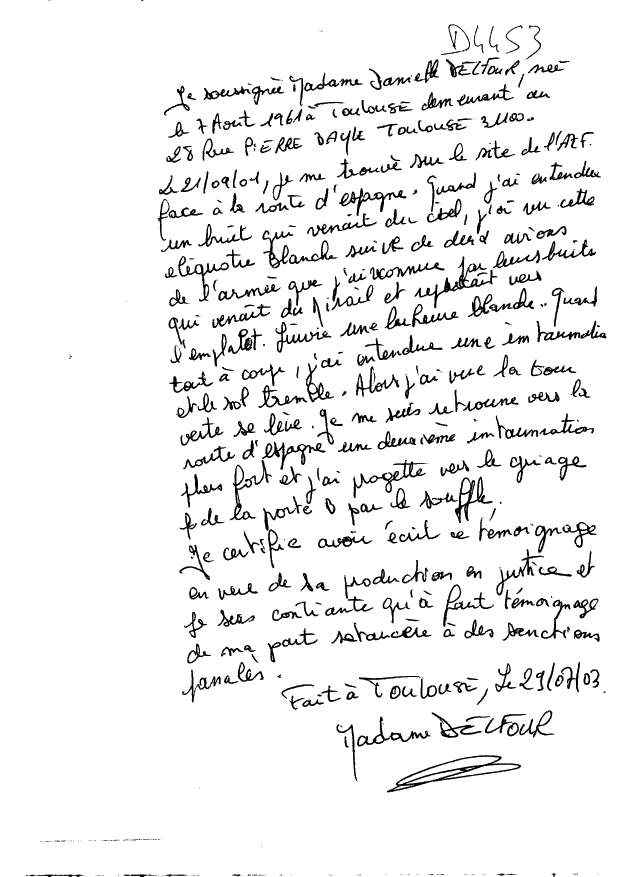 D4453
Je soussignée Madame Danielle DELFOUR, née
le 7 Aout 1961 à Toulouse demeurant au
28 Rue PIERRE BAYLE TOULOUSE 31100.
Le 21/09/01, je me trouvé sur le site de l'AZF.
face à la route d'espagne. Quand j'ai entendue
un buit qui venait du ciel, j'ai vu cette
eliquotre Blanche suivR de deux avions
de l'armée que j'ai reconnue par leurs buits
qui venait du Mirail et repartait vers
l'emplalot. Suivie une lucheure blanche.. Quand
tout à coup, j'ai entendue une intaurnation
et le sol tremble. Alors j'ai vue la tour
verte se lève. Je me suis retroune vers la
route d'espagne une deuxième intaurnation
plus fort et j'ai progetté vers le griage
de la porte B par le souffle.
Je certifie avoir écrit ce témoignage
en vere de sa production en justice et
je suis contiante qu'à faut témoignage
de ma part à des sanctions
panalès.
Fait à Toulouse, Le 29/07/03.
Madame DELFOUR